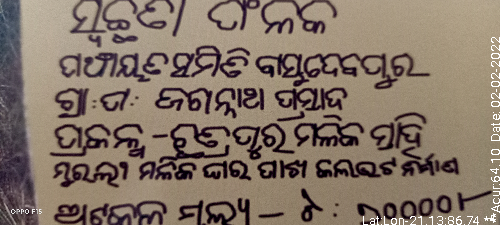 ସ୍ୱଚ୍ଛତା ଫଳକ
ପଞ୍ଚାୟତ ସମିତି ବାସୁଦେବପୁର
ଗ୍ରା:ପ: ଜଗନ୍ନାଥ ପ୍ରସାଦ
ପ୍ରକଳ୍ପ - ଚୁଡ଼ାପୁର ମଳିକ ସାହି
ମୁରଲୀ ମଳିକ ଘର ପାଖ କଲଭର୍ଟ ନିର୍ମାଣ
ଅଟକଳ ମୂଲ୍ୟ - ଟ: 200000/-
OPPO F15
Lat:Lon-21.13:86.74 ** Acu:64 10 Date: 02-02-2022